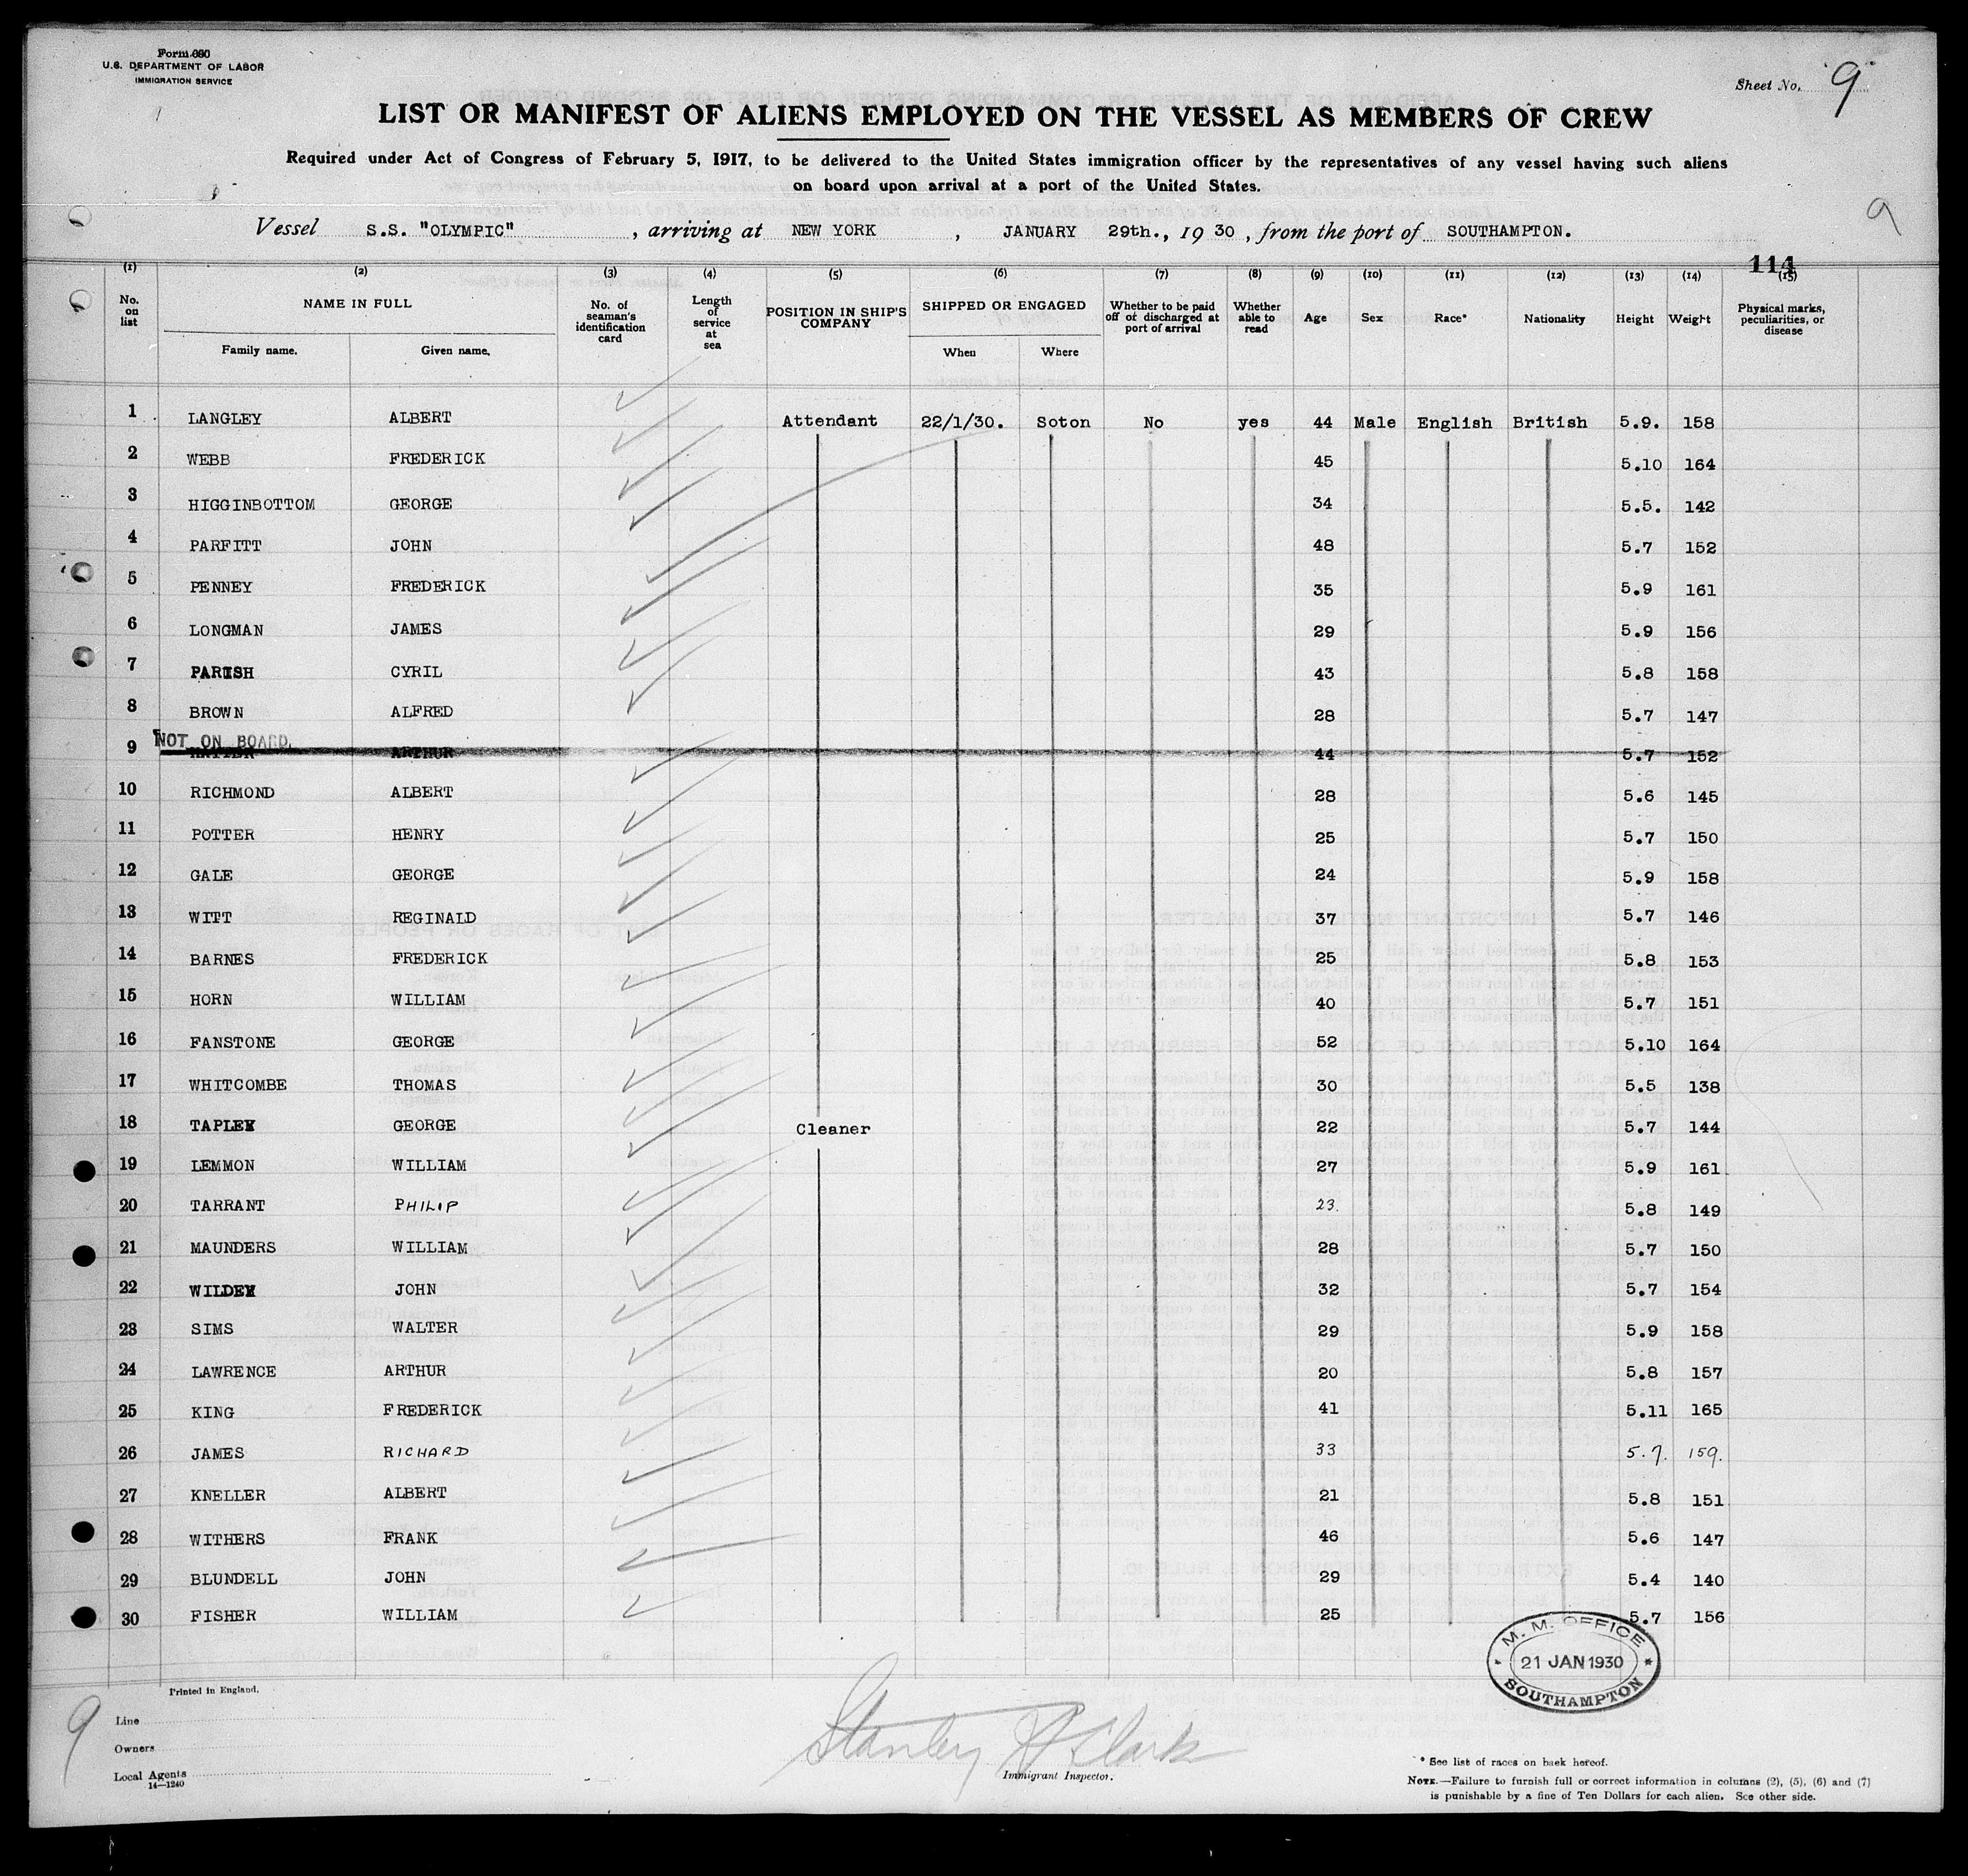 Form 680
U.S. DEPARTMENT OF LABOR
IMMIGRATION SERVICE
Sheet No. 9
LIST OR MANIFEST OF ALIENS EMPLOYED ON THE VESSEL AS MEMBERS OF CREW
Required under Act of Congress of February 5, 1917, to be delivered to the United States immigration officer by the representatives of any vessel having such aliens
on board upon arrival at a port of the United States.
9
Vessel S.S. "OLYMPIC" , arriving at NEW YORK , JANUARY 29th., 19 30 , from the port of SOUTHAMPTON.
114
(1) (2) (3) (4) (5) (6) (7) (8) (9) (10) (11) (12) (13) (14) (15)
No. on list NAME IN FULL Family name. Given name. No. of seaman's identification card Length of service at sea POSITION IN SHIP'S COMPANY SHIPPED OR ENGAGED When Where Whether to be paid off or discharged at port of arrival Whether able to read Age Sex Race* Nationality Height Weight Physical marks, peculiarities, or disease
1 LANGLEY ALBERT Attendant 22/1/30. Soton No yes 44 Male English British 5.9. 158
2 WEBB FREDERICK 45 5.10 164
3 HIGGINBOTTOM GEORGE 34 5.5. 142
4 PARFITT JOHN 48 5.7 152
5 PENNEY FREDERICK 35 5.9 161
6 LONGMAN JAMES 29 5.9 156
7 PARISH CYRIL 43 5.8 158
8 BROWN ALFRED 28 5.7 147
NOT ON BOARD.
9 ARTHUR 44 5.7 152
10 RICHMOND ALBERT 28 5.6 145
11 POTTER HENRY 25 5.7 150
12 GALE GEORGE 24 5.9 158
13 WITT REGINALD 37 5.7 146
14 BARNES FREDERICK 25 5.8 153
15 HORN WILLIAM 40 5.7 151
16 FANSTONE GEORGE 52 5.10 164
17 WHITCOMBE THOMAS 30 5.5 138
18 TAPLEY GEORGE Cleaner 22 5.7 144
19 LEMMON WILLIAM 27 5.9 161
20 TARRANT PHILIP 23. 5.8 149
21 MAUNDERS WILLIAM 28 5.7 150
22 WILDEY JOHN 32 5.7 154
23 SIMS WALTER 29 5.9 158
24 LAWRENCE ARTHUR 20 5.8 157
25 KING FREDERICK 41 5.11 165
26 JAMES RICHARD 33 5.7. 159.
27 KNELLER ALBERT 21 5.8 151
28 WITHERS FRANK 46 5.6 147
29 BLUNDELL JOHN 29 5.4 140
30 FISHER WILLIAM 25 5.7 156
M. M. OFFICE
21 JAN 1930
SOUTHAMPTON
Printed in England.
9
Line
Owners
Local Agents
14—1240
Stanley Clark
Immigrant Inspector.
* See list of races on back hereof.
NOTE.—Failure to furnish full or correct information in columns (2), (5), (6) and (7)
is punishable by a fine of Ten Dollars for each alien. See other side.